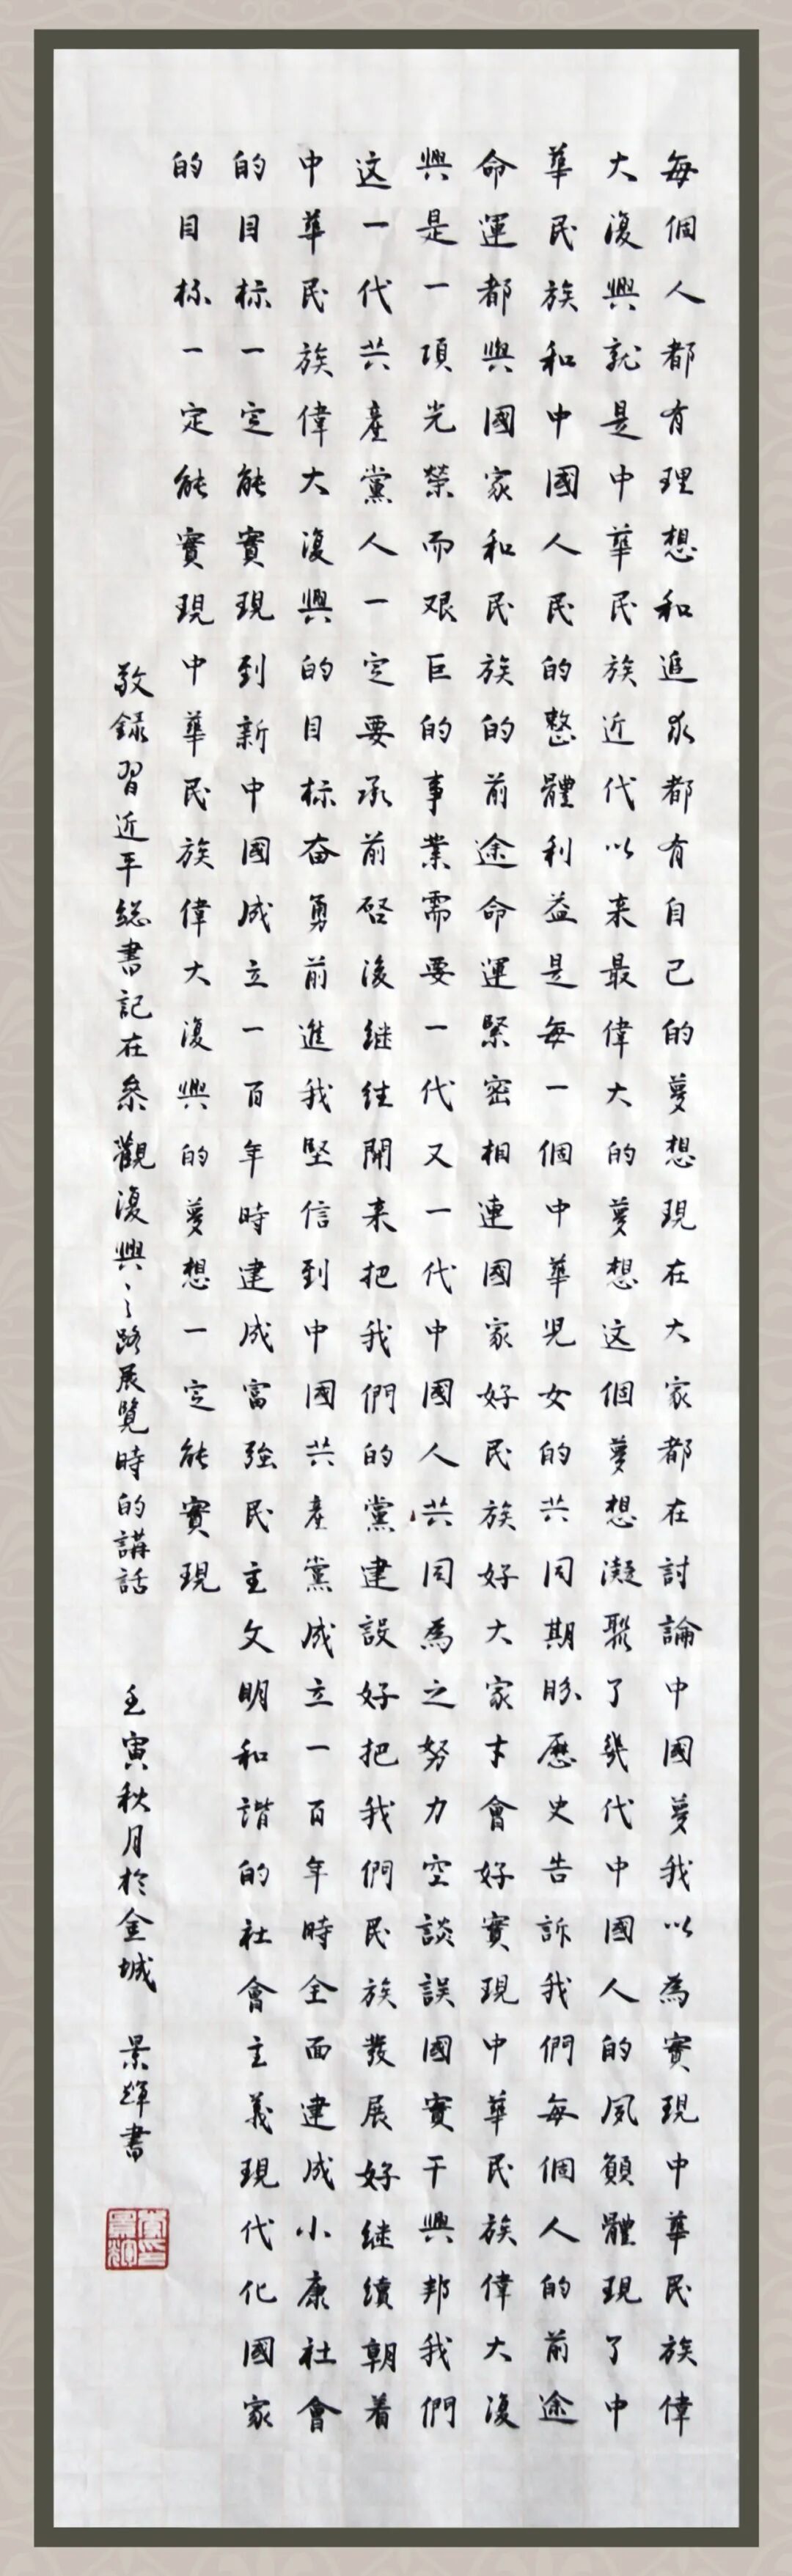 每個人都有理想和追求都有自己的夢想現在大家都在討論中國夢我以為實現中華民族偉
大復興就是中華民族近代以来最偉大的夢想这個夢想凝聚了幾代中國人的夙願體現了中
華民族和中國人民的整體利益是每一個中華児女的共同期盼歷史告訴我們每個人的前途
命運都與國家和民族的前途命運緊密相連國家好民族好大家才會好實現中華民族偉大復
興是一項光榮而艰巨的事業需要一代又一代中國人共同為之努力空談誤國實干興邦我們
这一代共產黨人一定要承前啓後继往開来把我們的黨建設好把我們民族發展好继續朝着
中華民族偉大復興的目标奋勇前進我堅信到中國共產黨成立一百年時全面建成小康社會
的目标一定能實現到新中國成立一百年時建成富強民主文明和諧的社會主義現代化國家
的目标一定能實現中華民族偉大復興的夢想一定能實現
敬録習近平総書記在参觀復興之路展覽時的講話 壬寅秋月於金城 景輝書